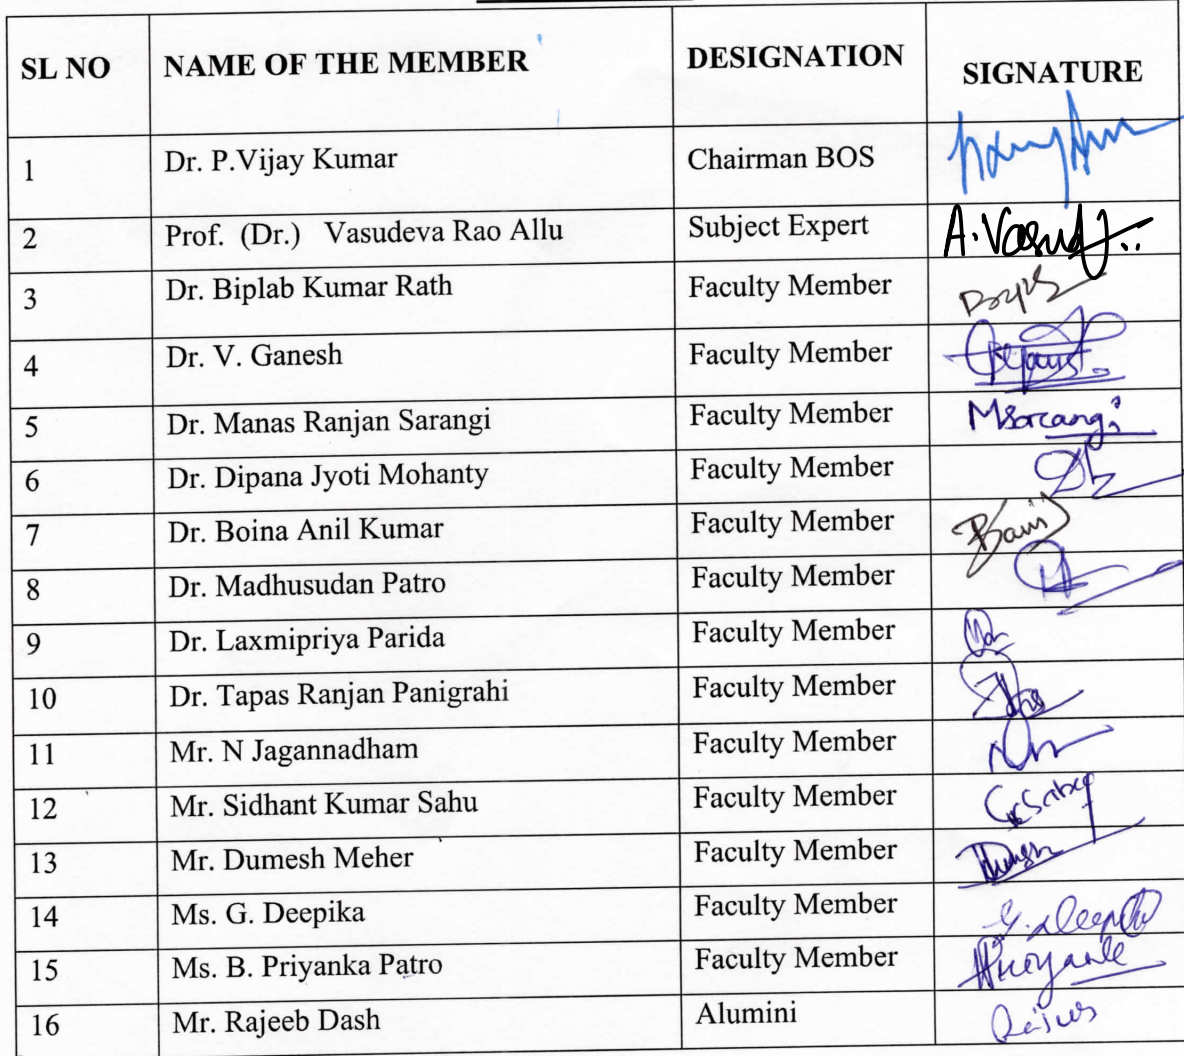 SL NO NAME OF THE MEMBER DESIGNATION SIGNATURE
1 Dr. P.Vijay Kumar Chairman BOS
2 Prof. (Dr.) Vasudeva Rao Allu Subject Expert A. Vasud
3 Dr. Biplab Kumar Rath Faculty Member
4 Dr. V. Ganesh Faculty Member
5 Dr. Manas Ranjan Sarangi Faculty Member MSarangi
6 Dr. Dipana Jyoti Mohanty Faculty Member
7 Dr. Boina Anil Kumar Faculty Member
8 Dr. Madhusudan Patro Faculty Member
9 Dr. Laxmipriya Parida Faculty Member
10 Dr. Tapas Ranjan Panigrahi Faculty Member
11 Mr. N Jagannadham Faculty Member
12 Mr. Sidhant Kumar Sahu Faculty Member
13 Mr. Dumesh Meher Faculty Member
14 Ms. G. Deepika Faculty Member G. Deepika
15 Ms. B. Priyanka Patro Faculty Member
16 Mr. Rajeeb Dash Alumini